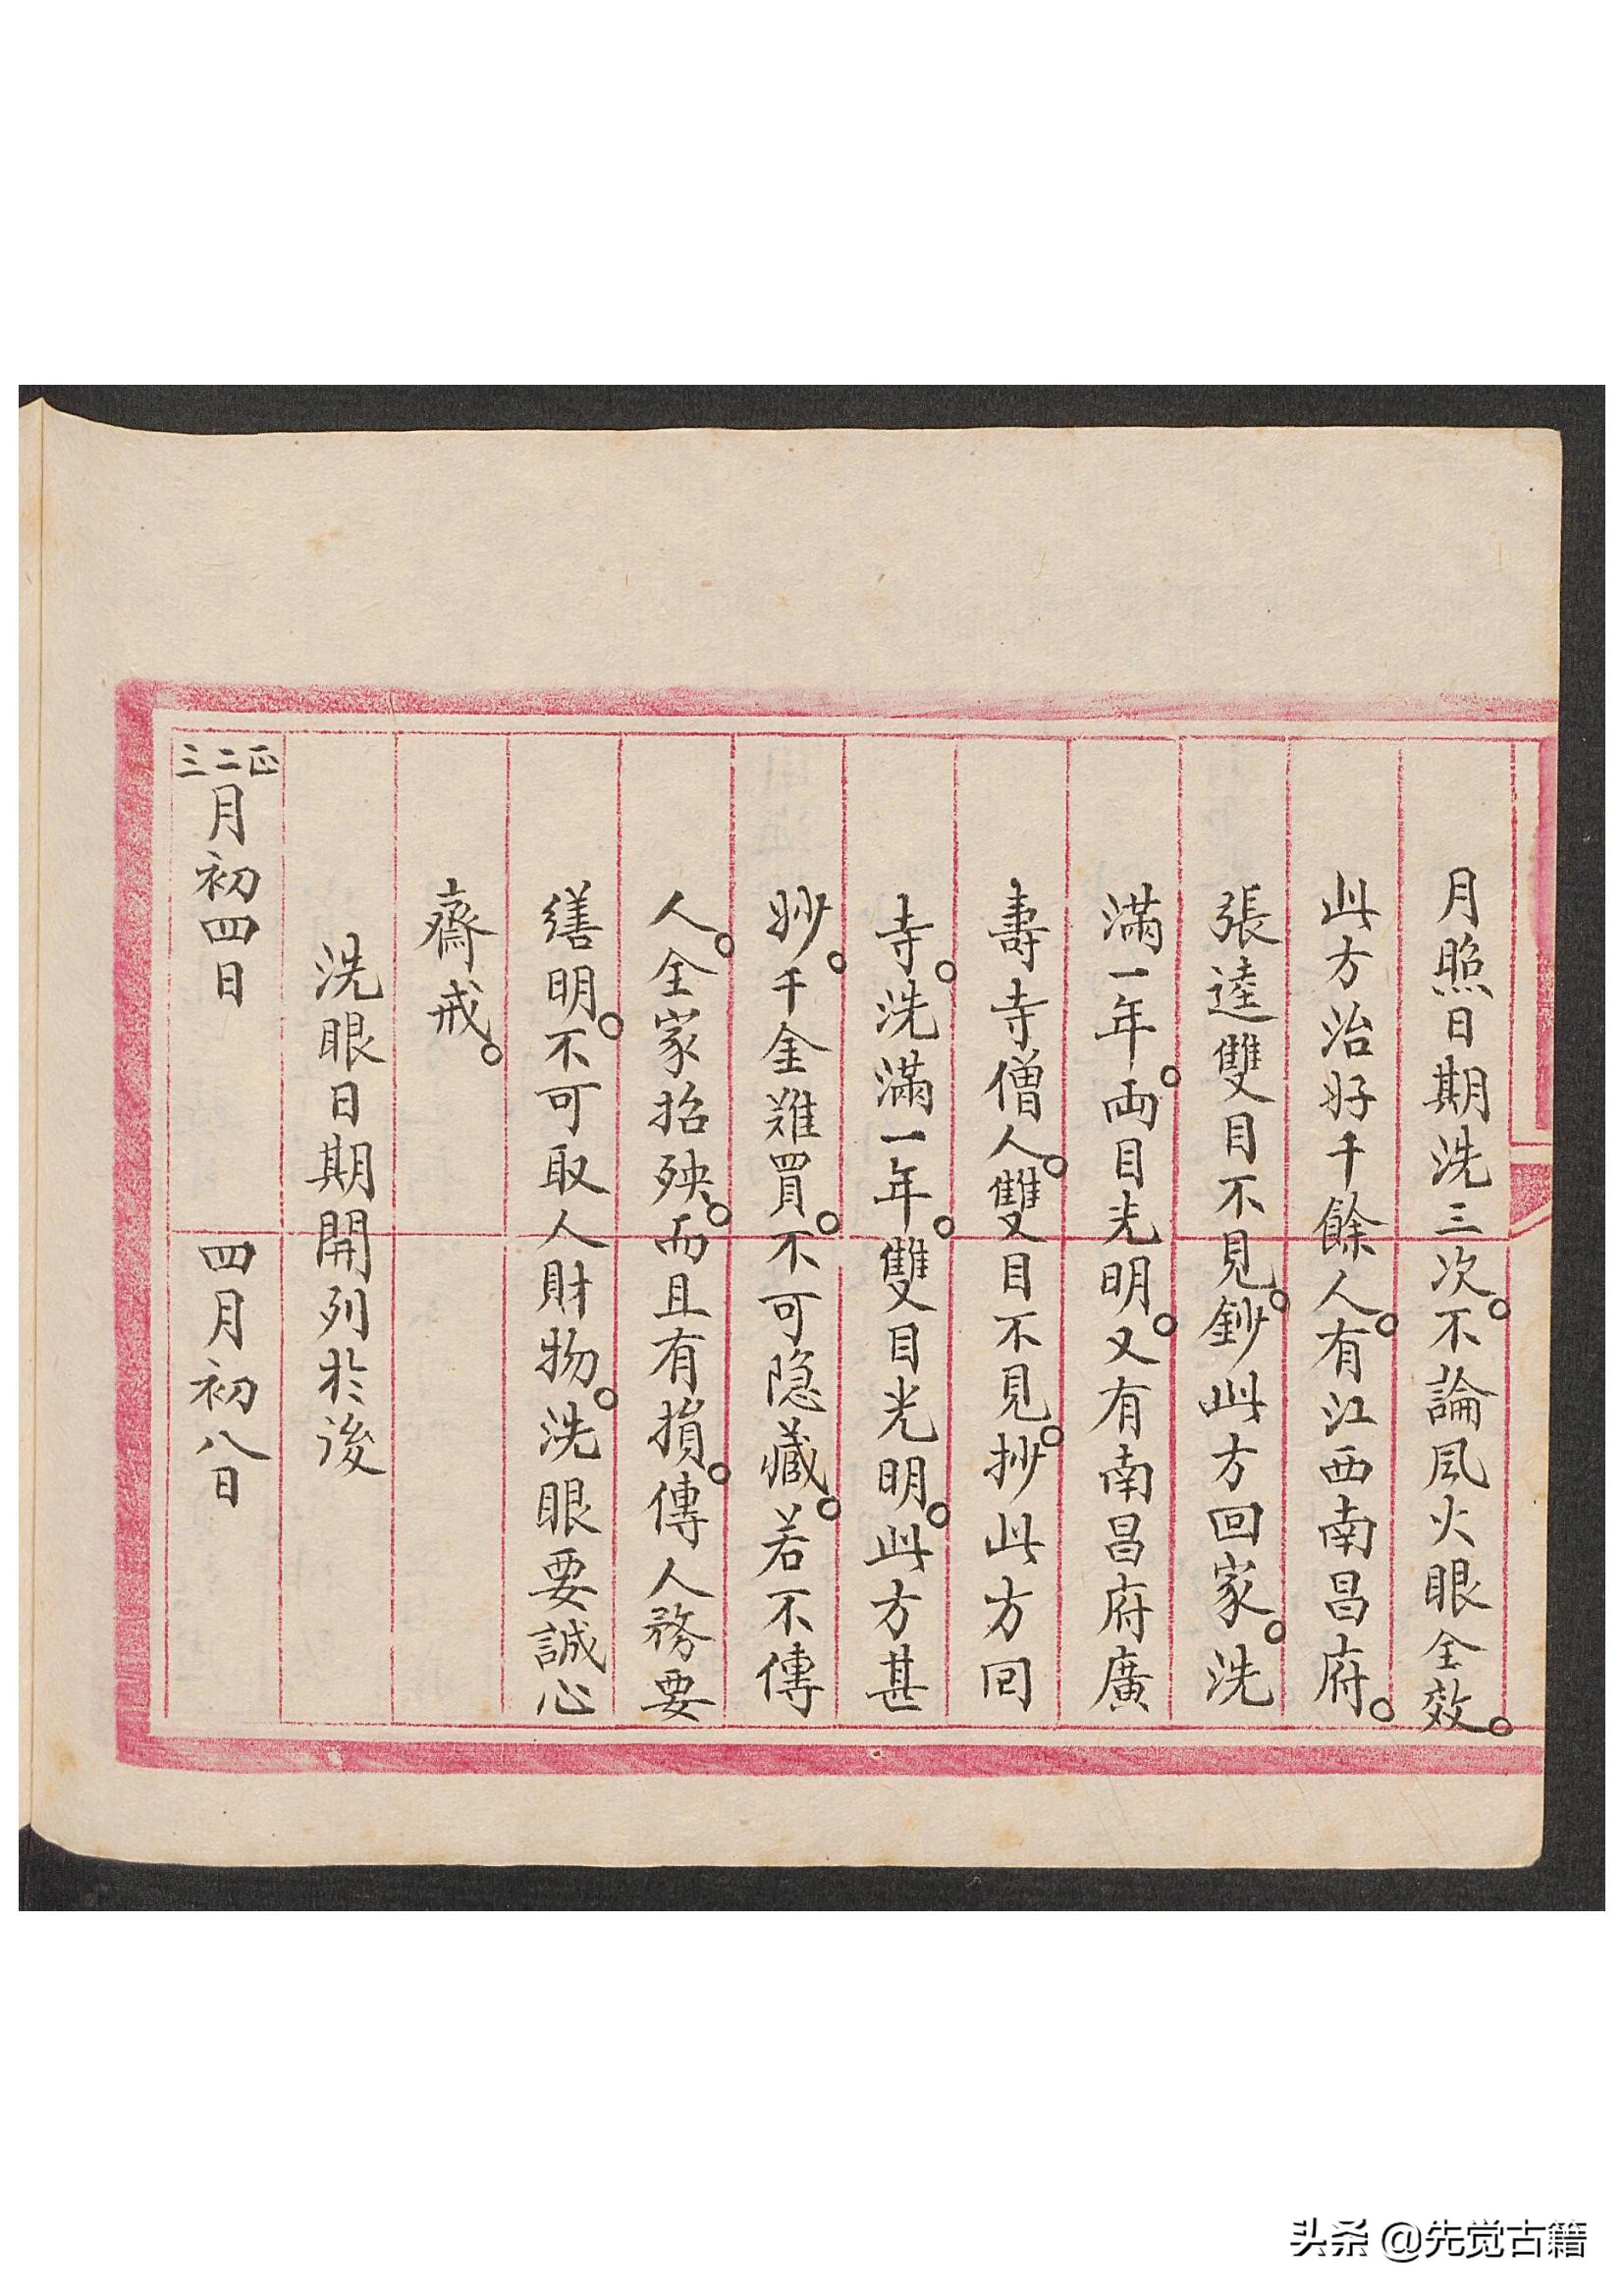 月照日期洗三次。不論風火眼全效。
此方治好千餘人。有江西南昌府。
張逵雙目不見。鈔此方回家。洗
滿一年。両目光明。又有南昌府廣
壽寺僧人。雙目不見。抄此方回
寺。洗滿一年。雙目光明。此方甚
妙。千金難買。不可隐藏。若不傳
人。全家招殃。而且有損。傳人務要
繕明。不可取人財物。洗眼要誠心
齋戒。
洗眼日期開列於後
正二三月初四日 四月初八日
头条 @先觉古籍